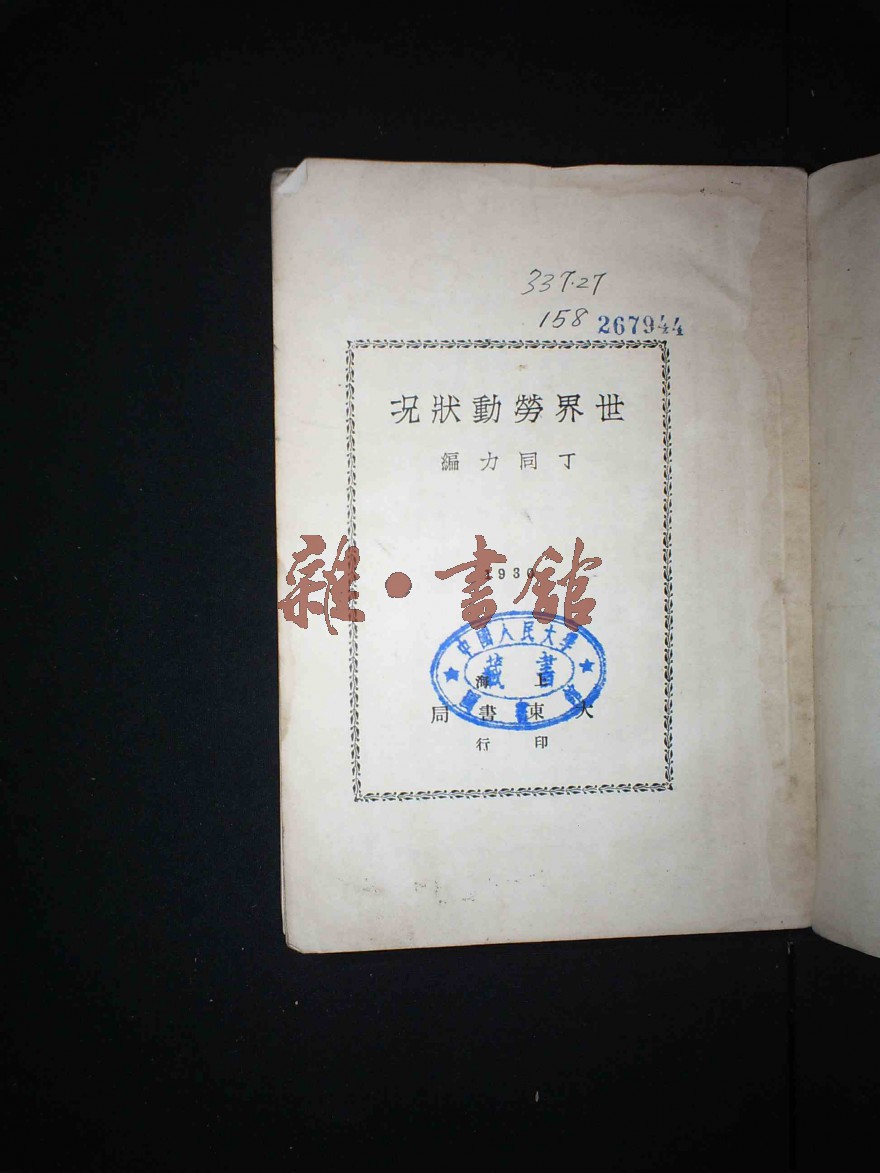 337.27
158 267944
世界勞動狀況
丁同力編
1930
雜·書館
中國人民大學
藏書
圖書館
上海
大東書局
印行